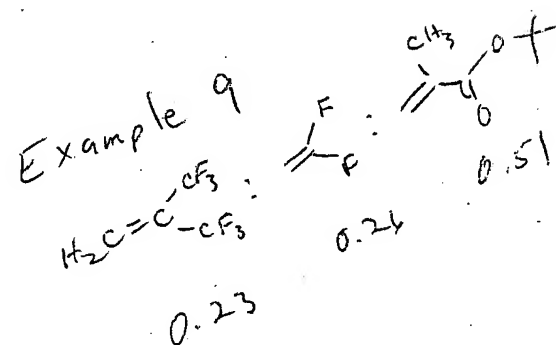 Example 9
H₂C=C
CF₃
-CF₃
:
F
F
:
CH₃
O
O
0.23
0.26
0.51